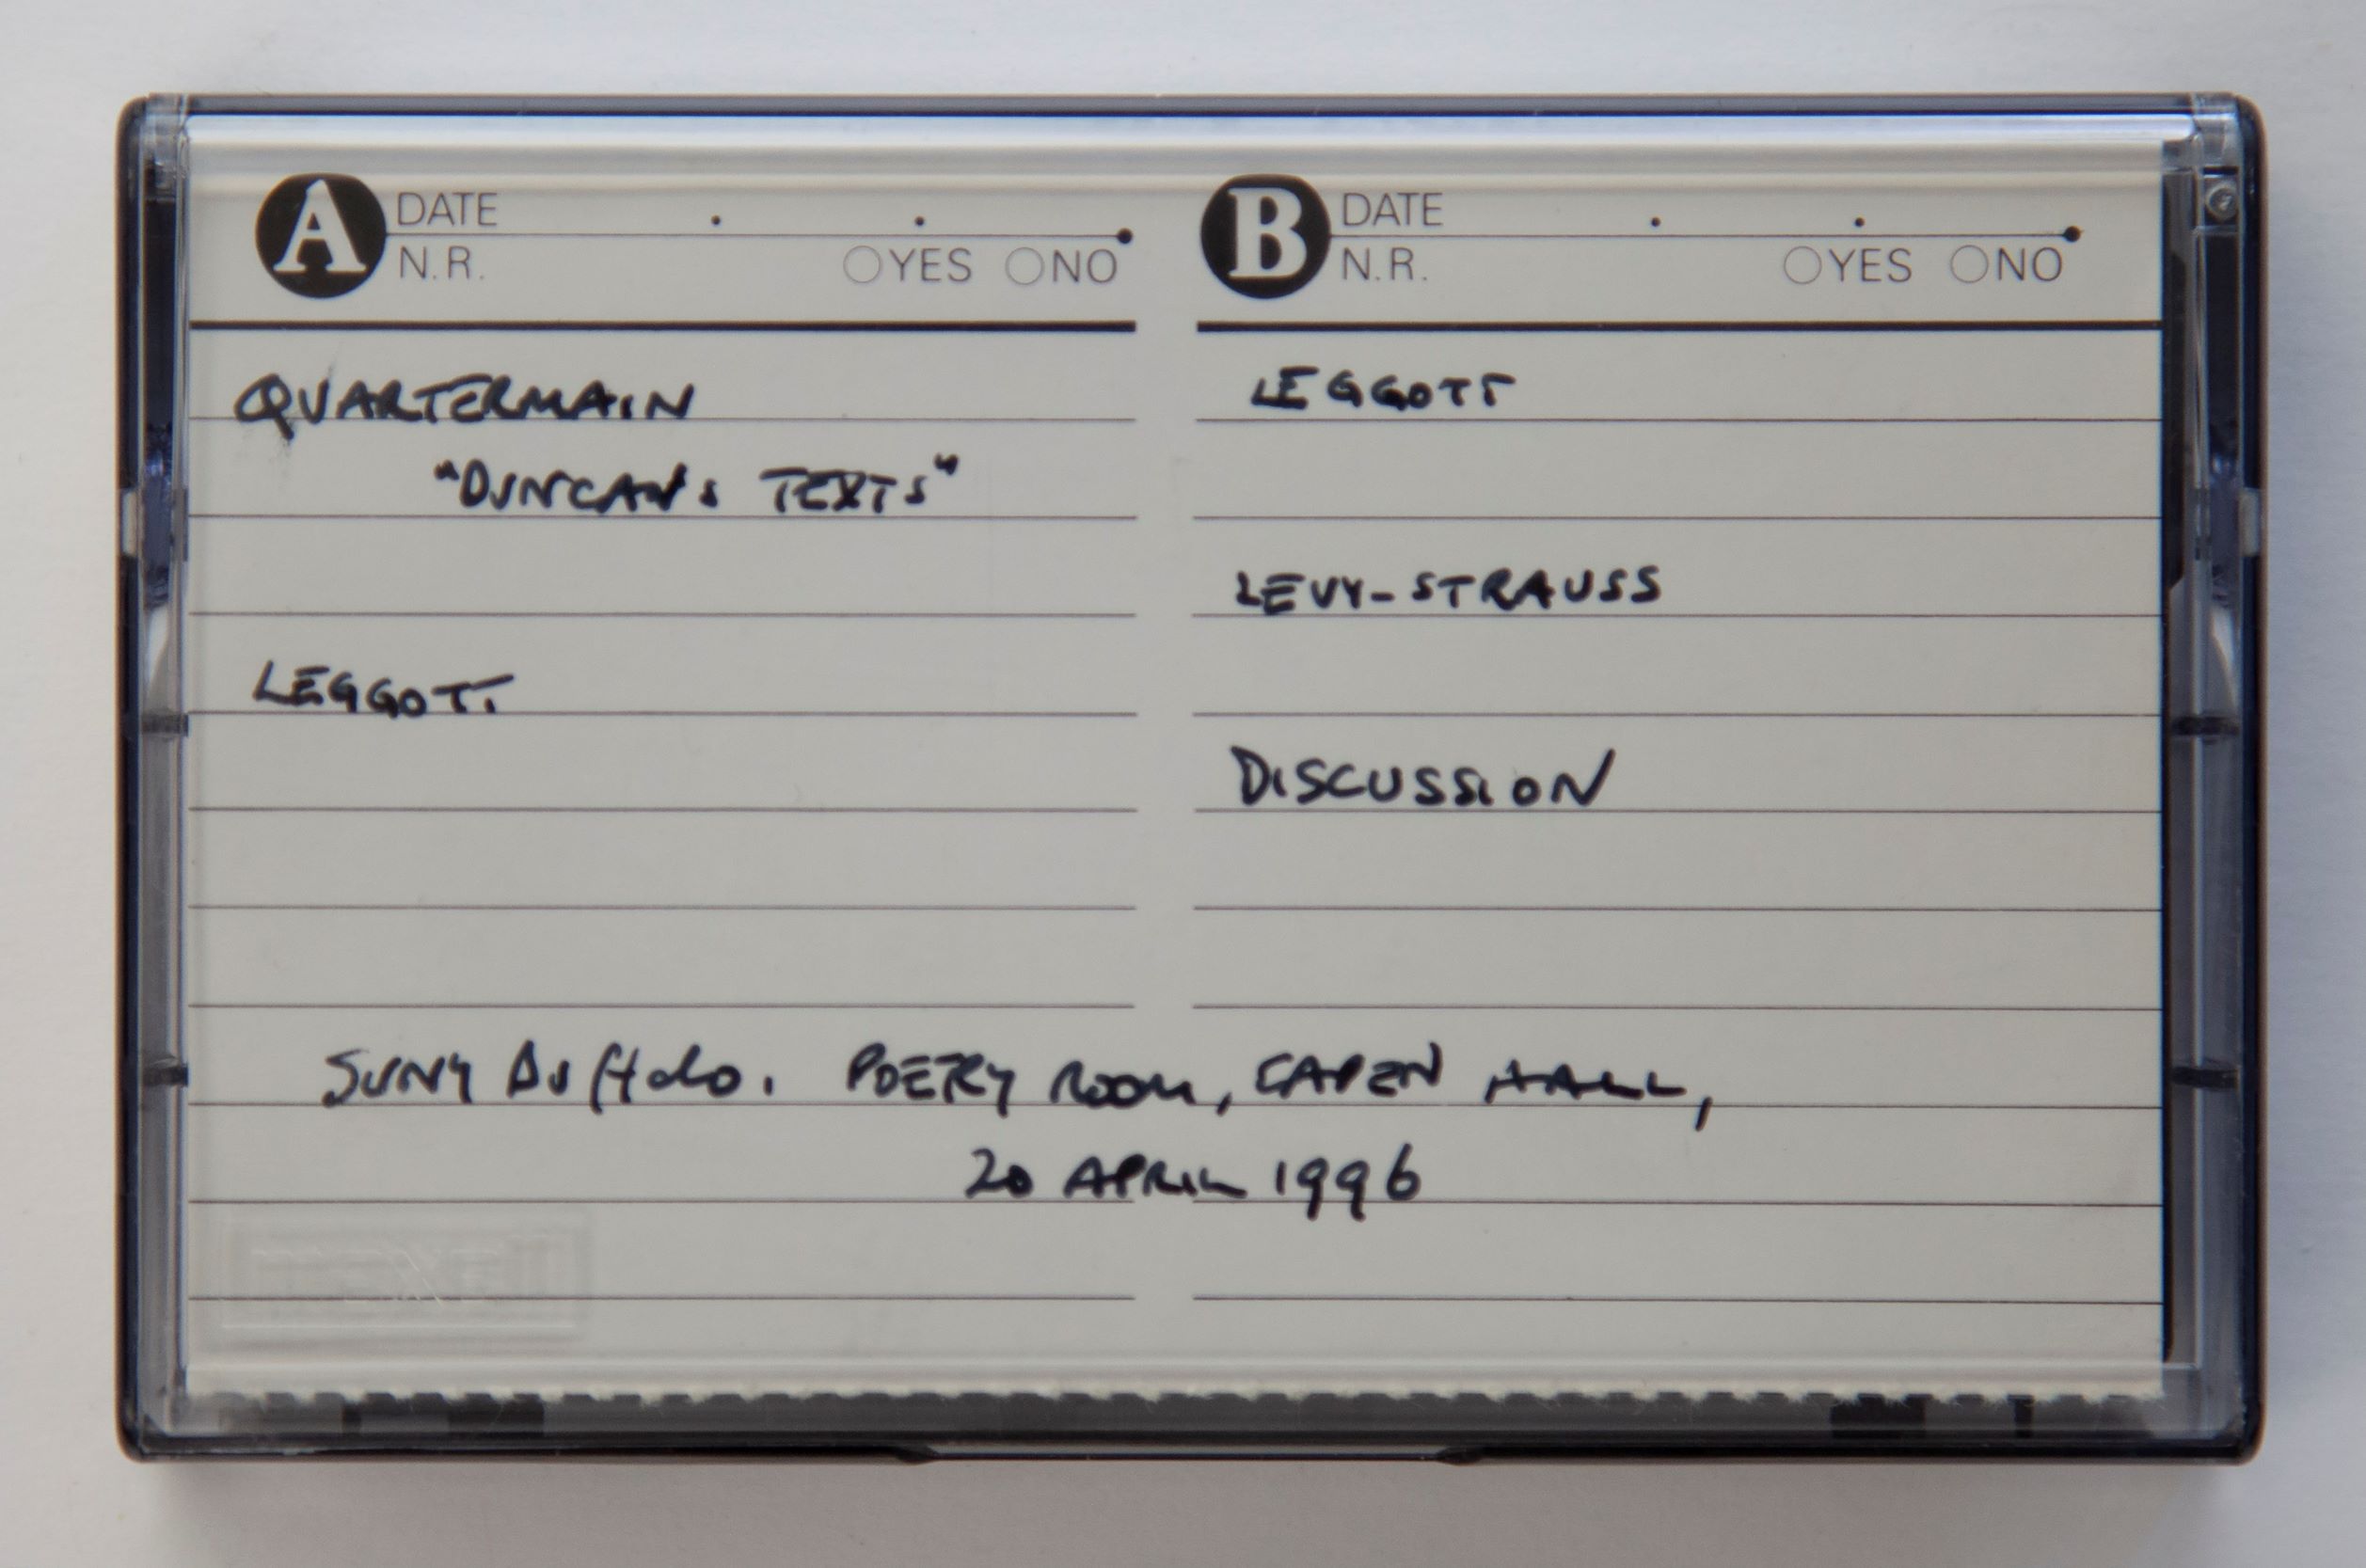 A DATE
N.R. YES NO
QUARTERMAIN
"DUNCAN'S TEXTS"
LEGGOTT
B DATE
N.R. YES NO
LEGGOTT
LEVY-STRAUSS
DISCUSSION
SUNY Buffalo. POETRY ROOM, CAPEN HALL,
20 APRIL 1996